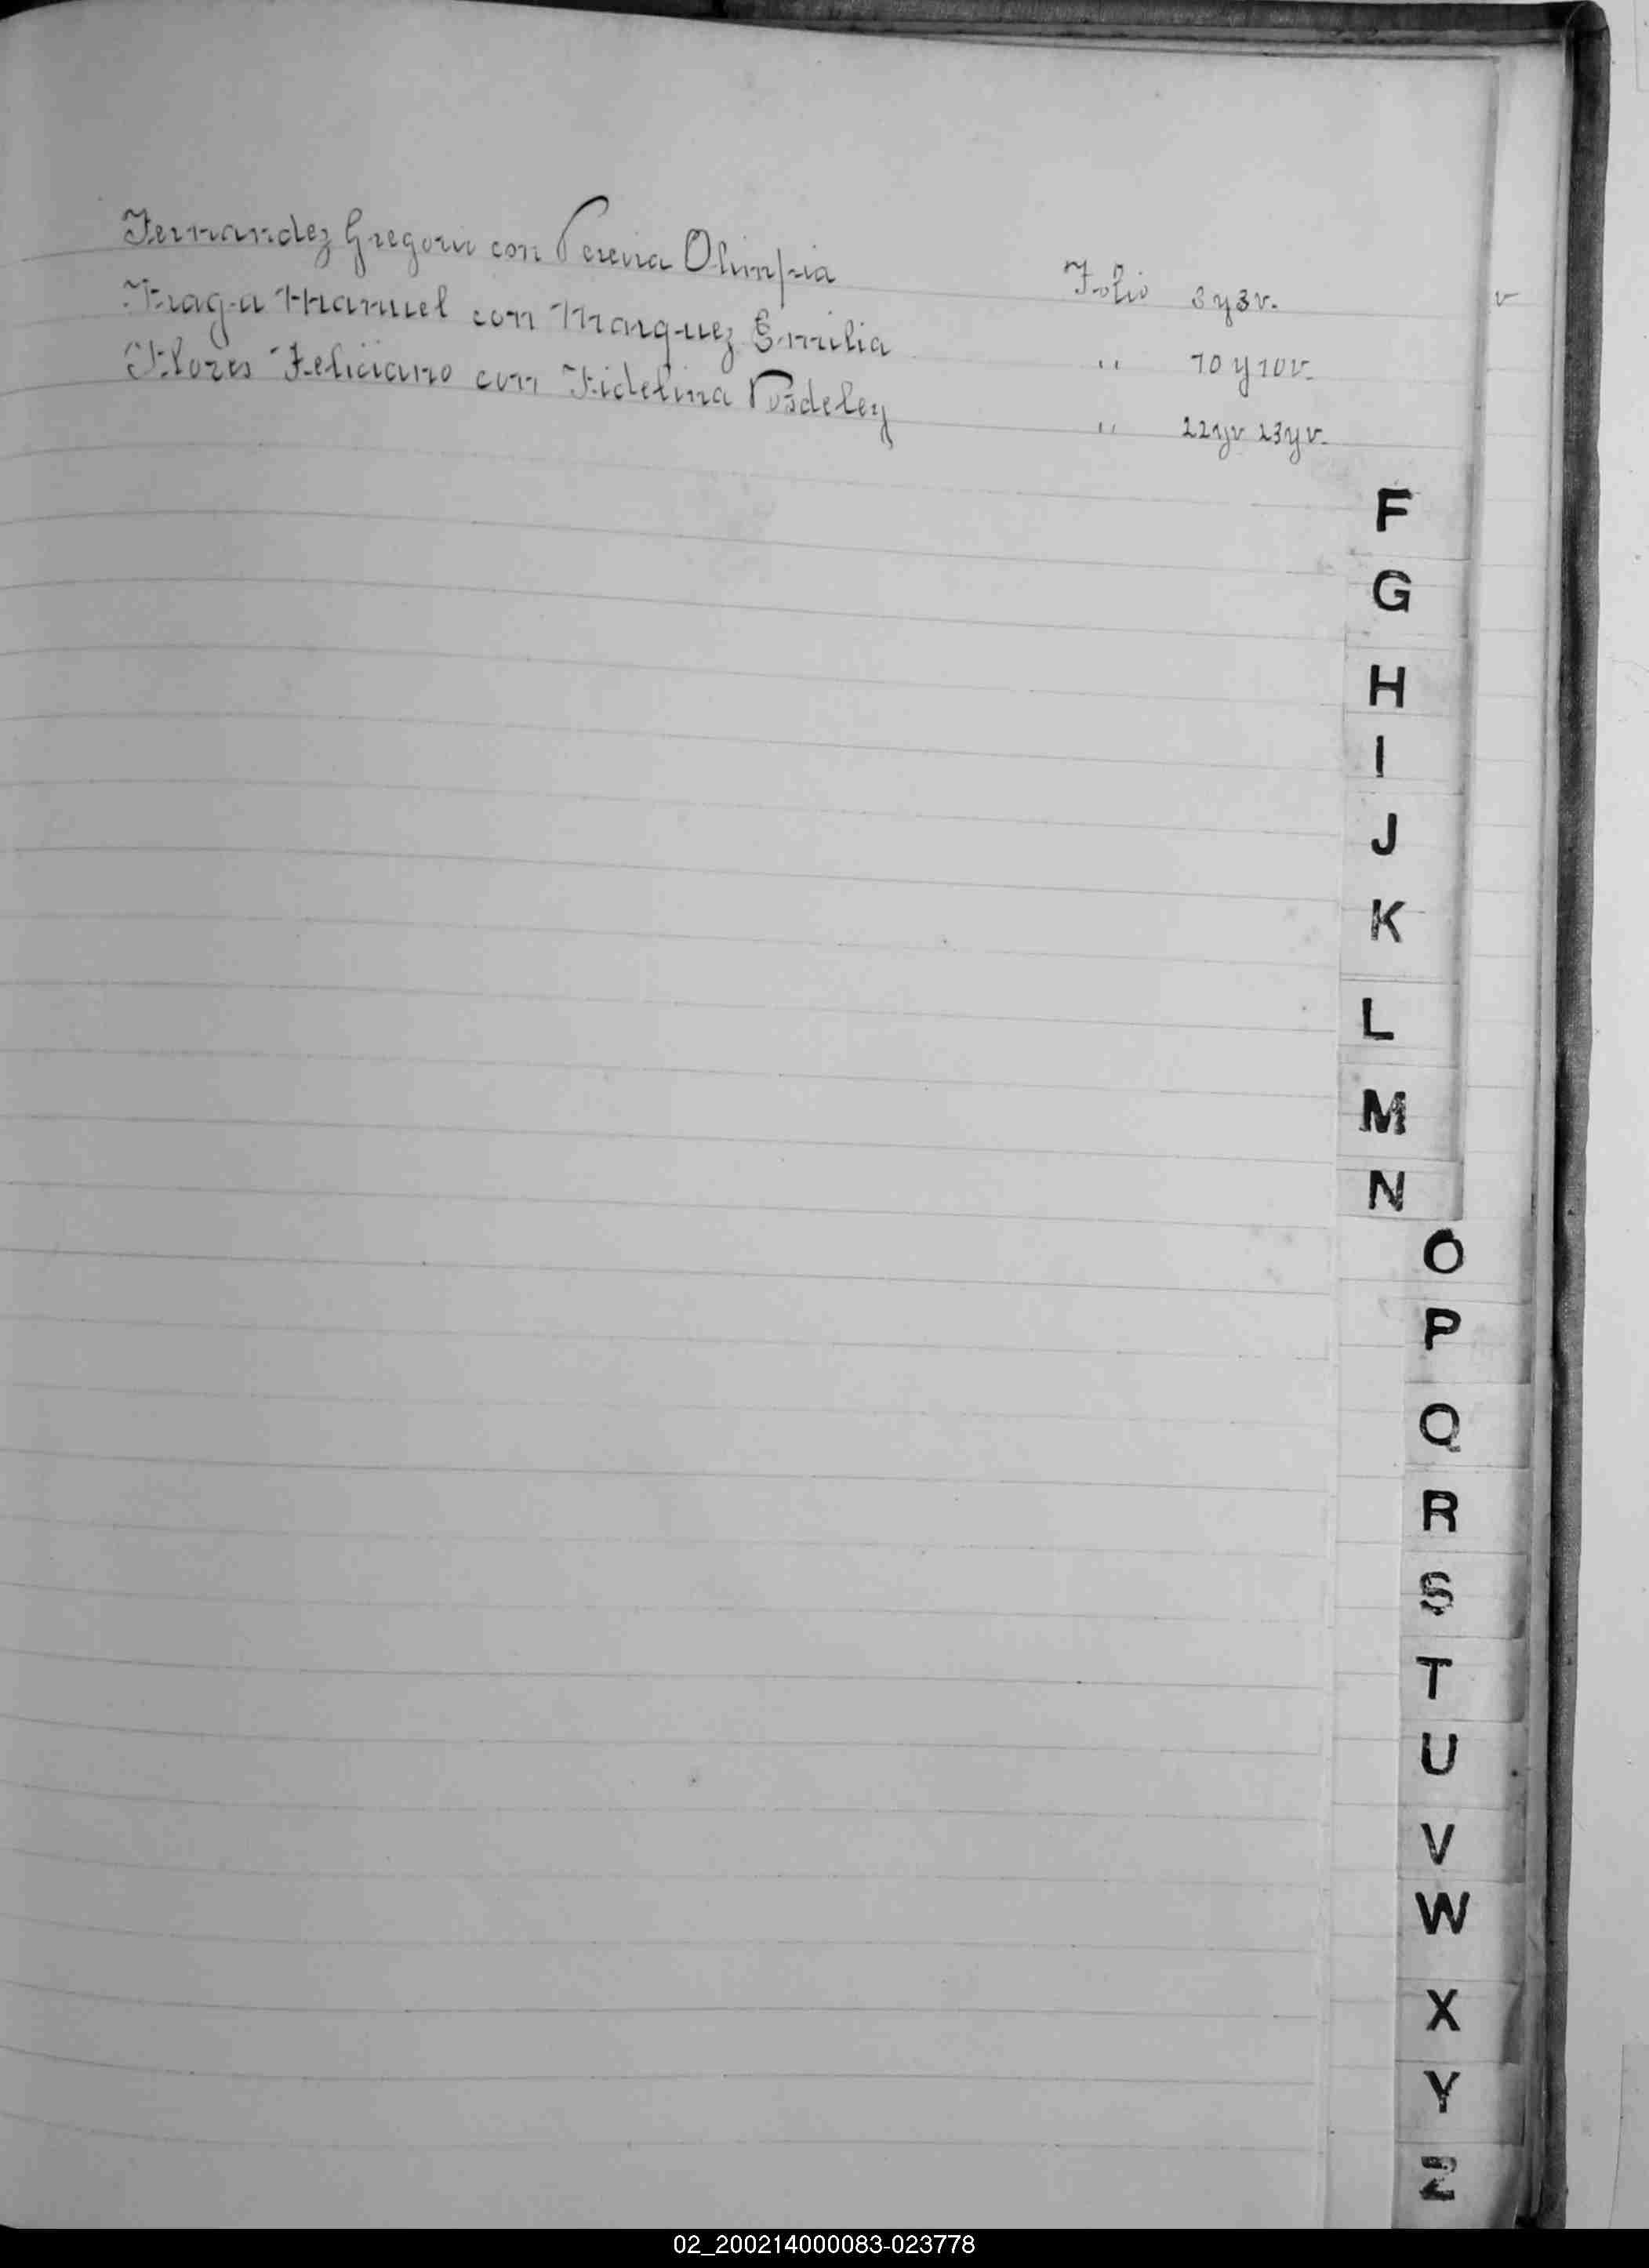 Fernandez Gregorio con Pereira Olimpia Folio 3 y 3v.
Fraga Manuel con Marquez Emilia " 10 y 10v.
Flores Feliciano con Fidelina " 22yv 23yv.
F
G
H
I
J
K
L
M
N
O
P
Q
R
S
T
U
V
W
X
Y
Z
02_200214000083-023778